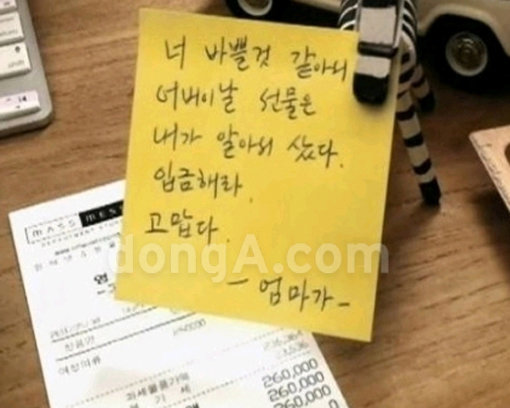 너 바쁠것 같아서
어버이날 선물은
내가 알아서 샀다.
입금해라.
고맙다.
- 엄마가 -
dongA.com
MASS MES
영
260,000
260,000
260,000